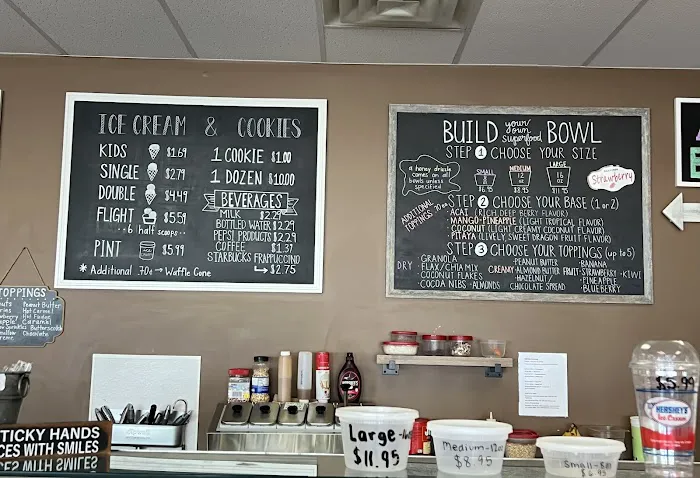 ICE CREAM & COOKIES
KIDS $1.69
SINGLE $2.79
DOUBLE $4.49
FLIGHT $5.59
·· 6 half scoops ··
PINT $5.99
* Additional .70¢ → Waffle Cone
1 COOKIE $1.00
1 DOZEN $10.00
BEVERAGES
MILK $2.29
BOTTLED WATER $2.29
PEPSI PRODUCTS $2.29
COFFEE $1.37
STARBUCKS FRAPPUCCINO
↳ $2.75
BUILD your own superfood BOWL
STEP 1 CHOOSE YOUR SIZE
a honey drizzle
comes on all
bowls unless
specified
SMALL
8
oz
$6.95
MEDIUM
12
oz
$8.95
LARGE
16
oz
$11.95
Strawberry
STEP 2 CHOOSE YOUR BASE (1 or 2)
ADDITIONAL
TOPPINGS .70
· ACAI (RICH DEEP BERRY FLAVOR)
· MANGO-PINEAPPLE (LIGHT TROPICAL FLAVOR)
· COCONUT (LIGHT CREAMY COCONUT FLAVOR)
· PITAYA (LIVELY, SWEET DRAGON FRUIT FLAVOR)
STEP 3 CHOOSE YOUR TOPPINGS (up to 5)
DRY
· GRANOLA
· FLAX/CHIA MIX
· COCONUT FLAKES
· COCOA NIBS · ALMONDS
CREAMY
· PEANUT BUTTER
· ALMOND BUTTER
· HAZELNUT/
CHOCOLATE SPREAD
FRUIT
· BANANA
· STRAWBERRY · KIWI
· PINEAPPLE
· BLUEBERRY
TOPPINGS
Peanut Butter
Hot Caramel
Hot Fudge
Caramel
Butterscotch
Chocolate
STICKY HANDS
CES WITH SMILES
Large
$11.95
Medium-12oz
$8.95
Small-8oz
$6.95
$5.99
HERSHEY'S
Ice Cream